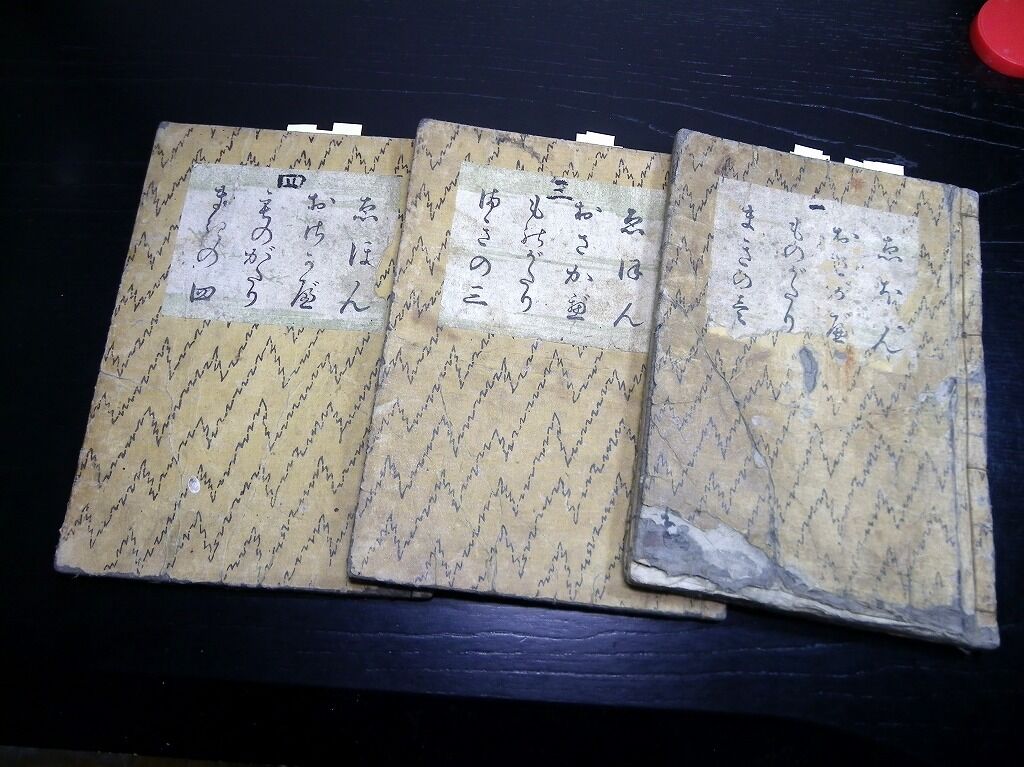 一
ゑほん
おさかべ
ものがたり
まきの壱
三
ゑほん
おさかべ
ものがたり
まきの三
四
ゑほん
おさかべ
ものがたり
まきの四